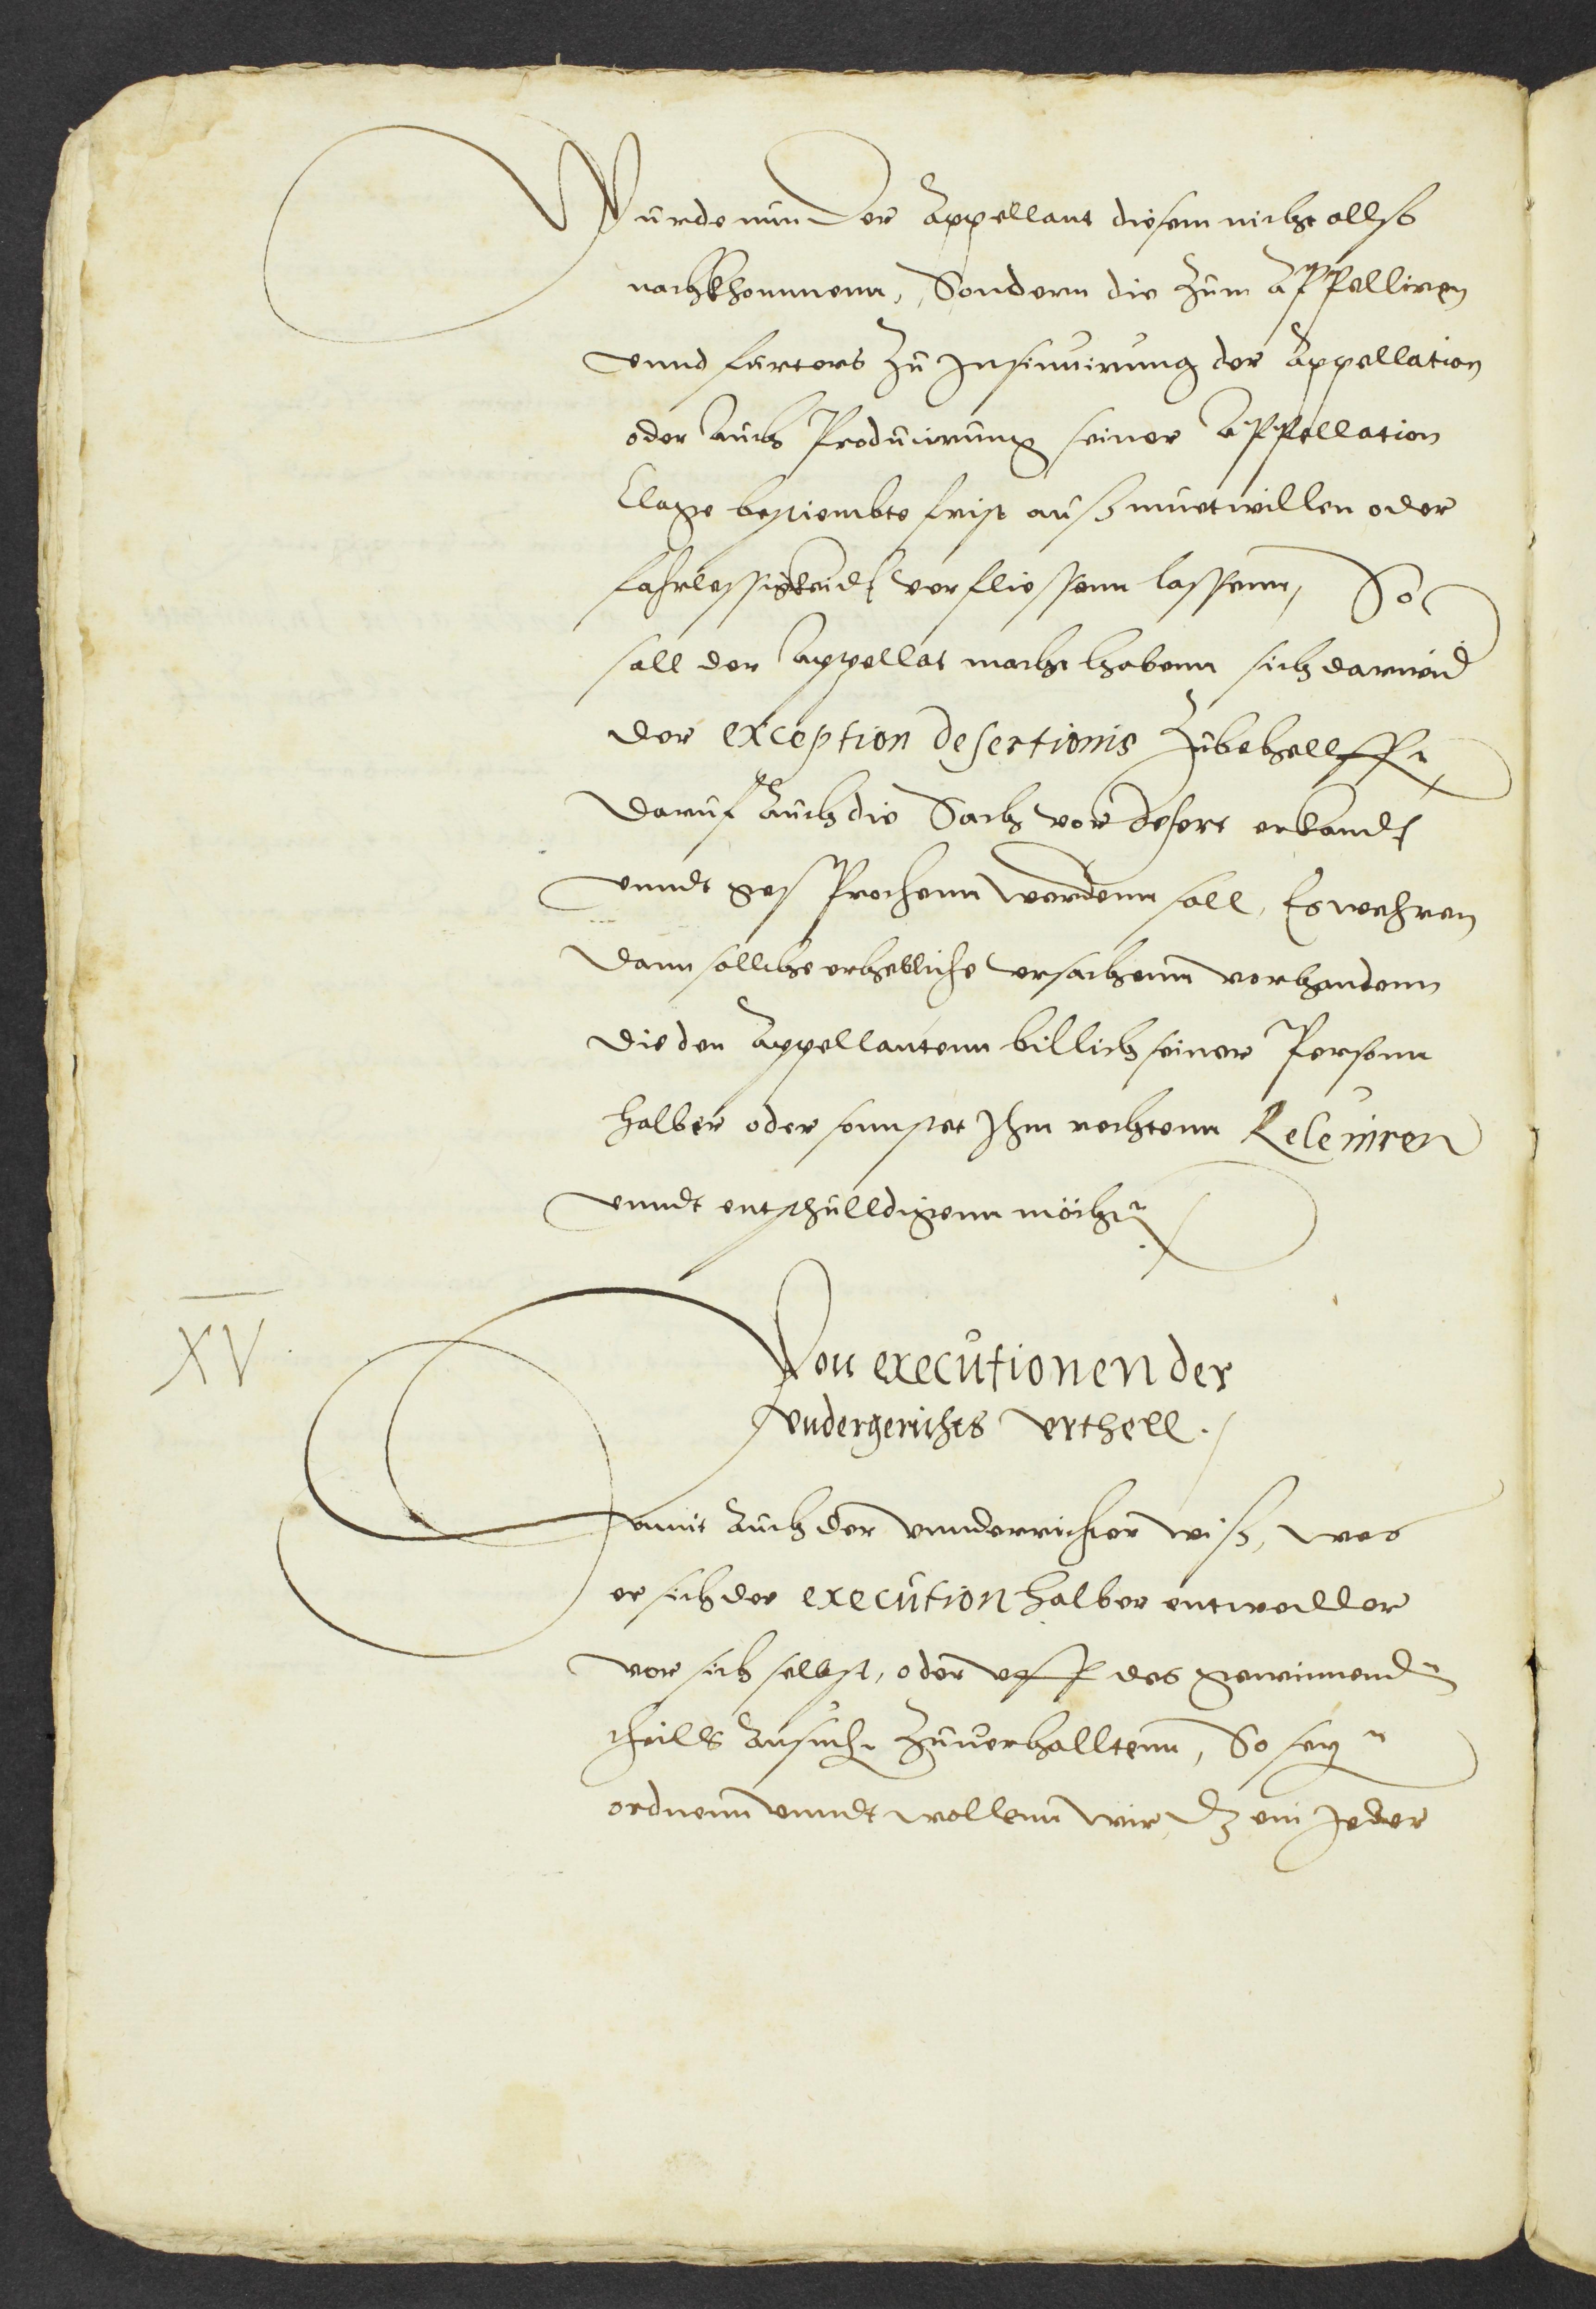 Wurde nun der Appellant diesem nicht allso
nachkhommenn, Sondern die zum Appelliren
vnnd furters zu Insinuirung der Appellation
oder Auch Producirung seiner Appellation
Clage bestiembte frist auß muetwillen oder
fahrlessigkeidt verfliessenn lassenn, So
soll der Appellat macht habenn sich darwid
der exception desertionis zubehellffn
daruf Auch die Sach vor desert erkandt
vnndt gesprochenn werdenn soll, Es wehren
dann solliche erhebliche vrsachenn vorhandenn
die den Appellantenn billich seiner Personn
halber oder sonnstet Ihm rechtenn Releuiren
vnndt entschulldigenn möchtn
XV.
Von executionen der
vndergerichts vrthell.
Damit Auch der vnnderrichter wiß, wes
er sich der execution halber entwedder
vor sich selbst, oder vff des gewinnendn
theills Ansuchn zuuerhalltenn, So sezn
ordnenn vnndt wollenn wir, dz ein Jeder